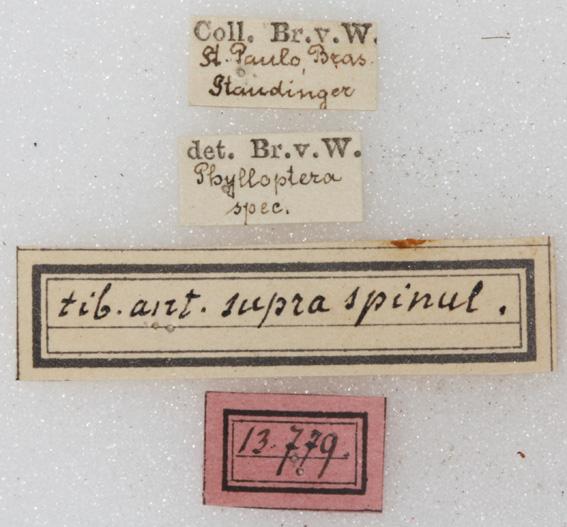 Coll. Br.v.W.
St. Paulo, Bras.
Staudinger
det. Br.v.W.
Phylloptera
spec.
tib. ant. supra spinul.
13.779.